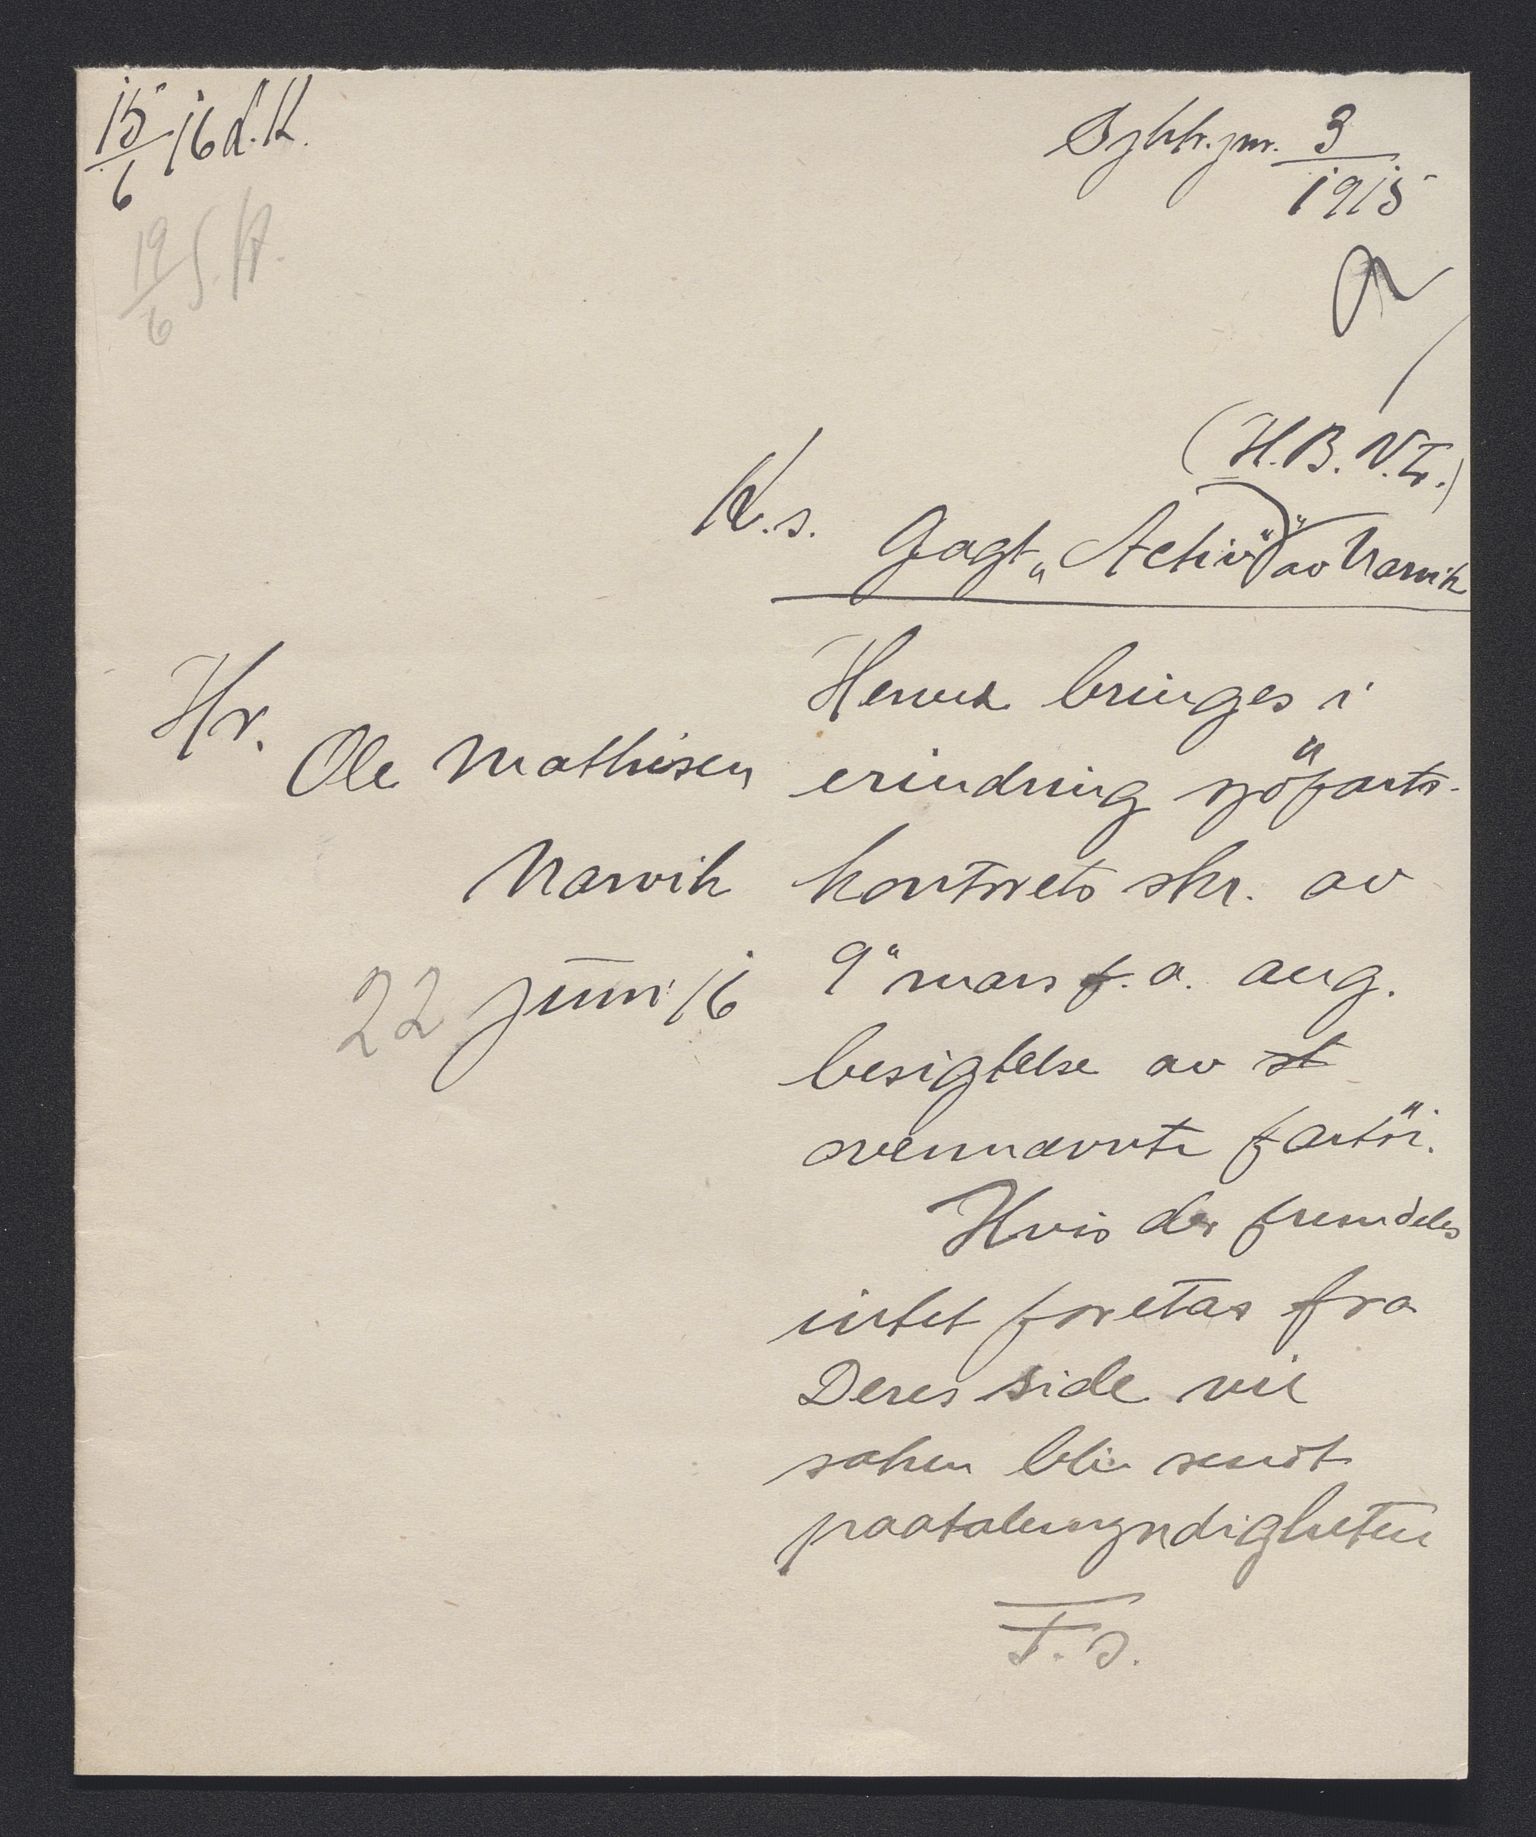 15/6 16 d.K.
3/1915
19/6 S.A.
(H.B.N.T.)
K.s.
Jagt „Activ" av Narvik
Herved bringes i
Hr.
Ole Mathisen
erindring sjöfarts-
Narvik
kontorets skr. av
22 juni 16
9" mars f.a. ang.
besigtelse av st
ovennævnte fartöi.
Hvis der fremdeles
intet foretas fra
Deres side vil
saken bli sendt
paatalemyndigheten
F.S.